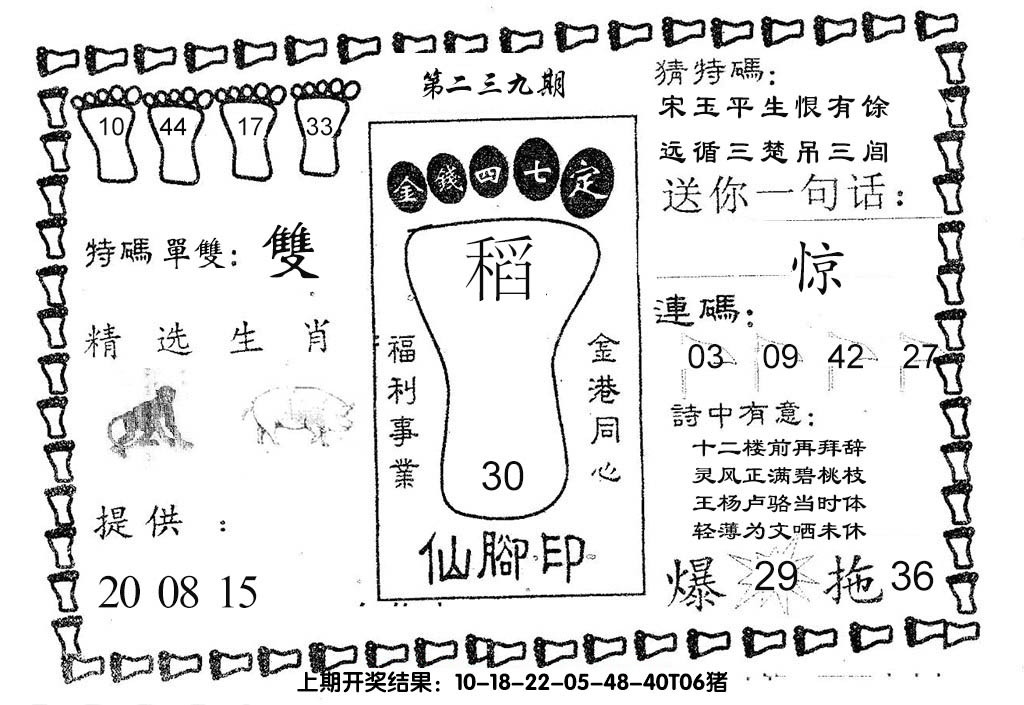 第二三九期
10 44 17 33
特碼單雙：雙
精选生肖
提供：
20 08 15
金錢四七定
稻
福利事業
金港同心
30
仙腳印
猜特碼：
宋玉平生恨有馀
远循三楚吊三闾
送你一句话：
惊
連碼：
03 09 42 27
詩中有意：
十二楼前再拜辞
灵风正满碧桃枝
王杨卢骆当时体
轻薄为文哂未休
爆 29 拖 36
上期开奖结果：10-18-22-05-48-40T06猪